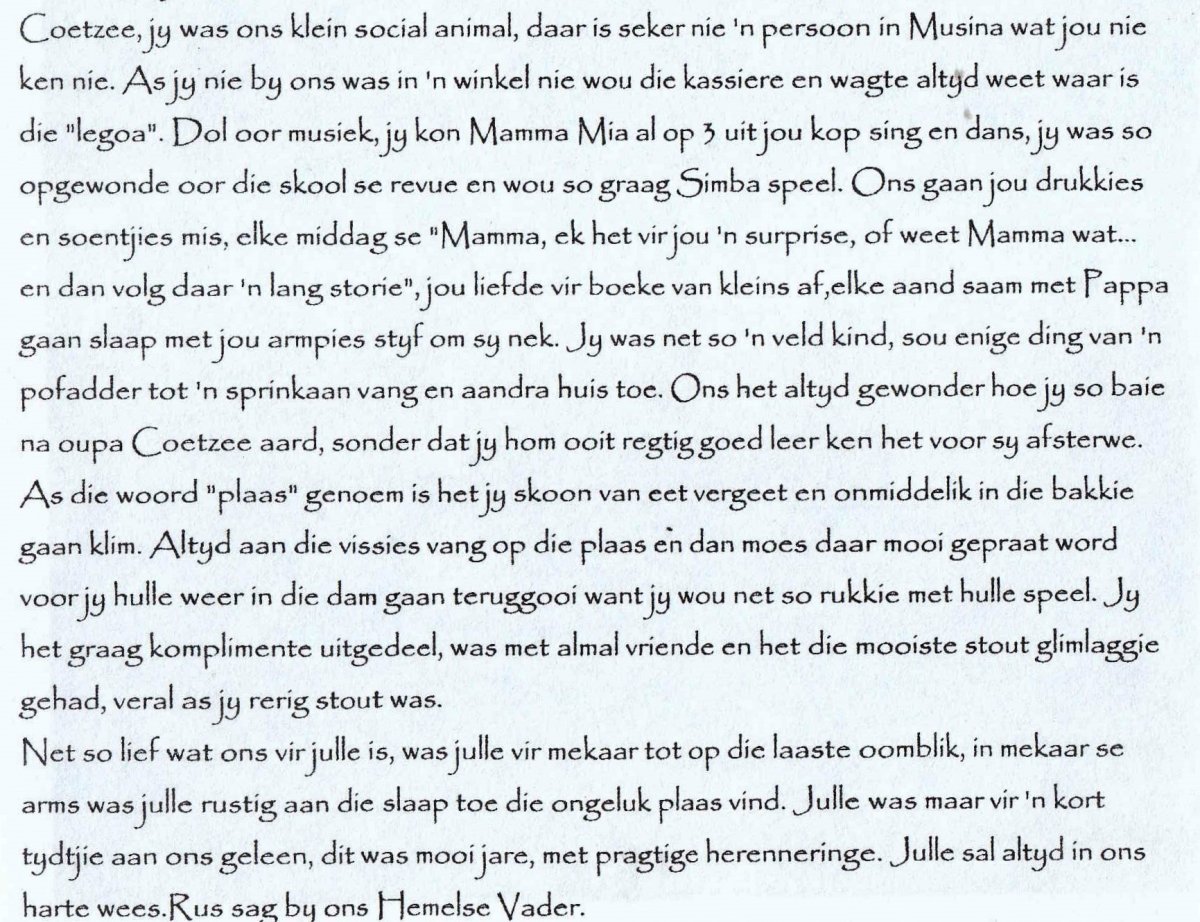 Coetzee, jy was ons klein social animal, daar is seker nie 'n persoon in Musina wat jou nie
ken nie. As jy nie by ons was in 'n winkel nie wou die kassiere en wagte altyd weet waar is
die "legoa". Dol oor musiek, jy kon Mamma Mia al op 3 uit jou kop sing en dans, jy was so
opgewonde oor die skool se revue en wou so graag Simba speel. Ons gaan jou drukkies
en soentjies mis, elke middag se "Mamma, ek het vir jou 'n surprise, of weet Mamma wat...
en dan volg daar 'n lang storie", jou liefde vir boeke van kleins af,elke aand saam met Pappa
gaan slaap met jou armpies styf om sy nek. Jy was net so 'n veld kind, sou enige ding van 'n
pofadder tot 'n sprinkaan vang en aandra huis toe. Ons het altyd gewonder hoe jy so baie
na oupa Coetzee aard, sonder dat jy hom ooit regtig goed leer ken het voor sy afsterwe.
As die woord "plaas" genoem is het jy skoon van eet vergeet en onmiddelik in die bakkie
gaan klim. Altyd aan die vissies vang op die plaas en dan moes daar mooi gepraat word
voor jy hulle weer in die dam gaan teruggooi want jy wou net so rukkie met hulle speel. Jy
het graag komplimente uitgedeel, was met almal vriende en het die mooiste stout glimlaggie
gehad, veral as jy rerig stout was.
Net so lief wat ons vir julle is, was julle vir mekaar tot op die laaste oomblik, in mekaar se
arms was julle rustig aan die slaap toe die ongeluk plaas vind. Julle was maar vir 'n kort
tydtjie aan ons geleen, dit was mooi jare, met pragtige herenneringe. Julle sal altyd in ons
harte wees.Rus sag by ons Hemelse Vader.